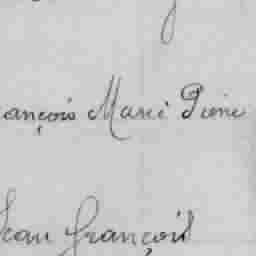 ançois Marie Pierre
Jean François